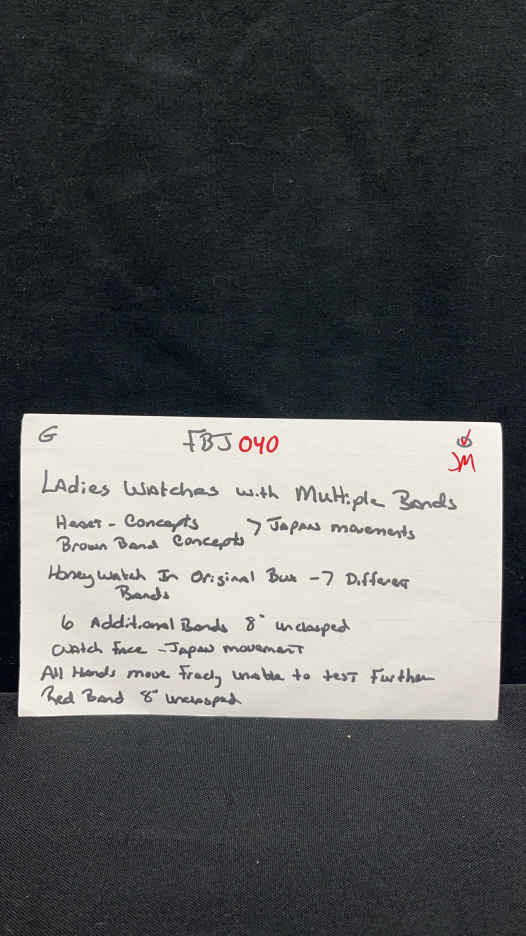 G FBJ 040
JM
Ladies Watches with Multiple Bands
Heart - Concepts > Japan movements
Brown Band Concepts
Honey Watch In Original Box - 7 Different
Bands
6 Additional Bands 8" unclasped
Watch face - Japan movement
All Hands move freely unable to test further
Red Band 8" unclasped